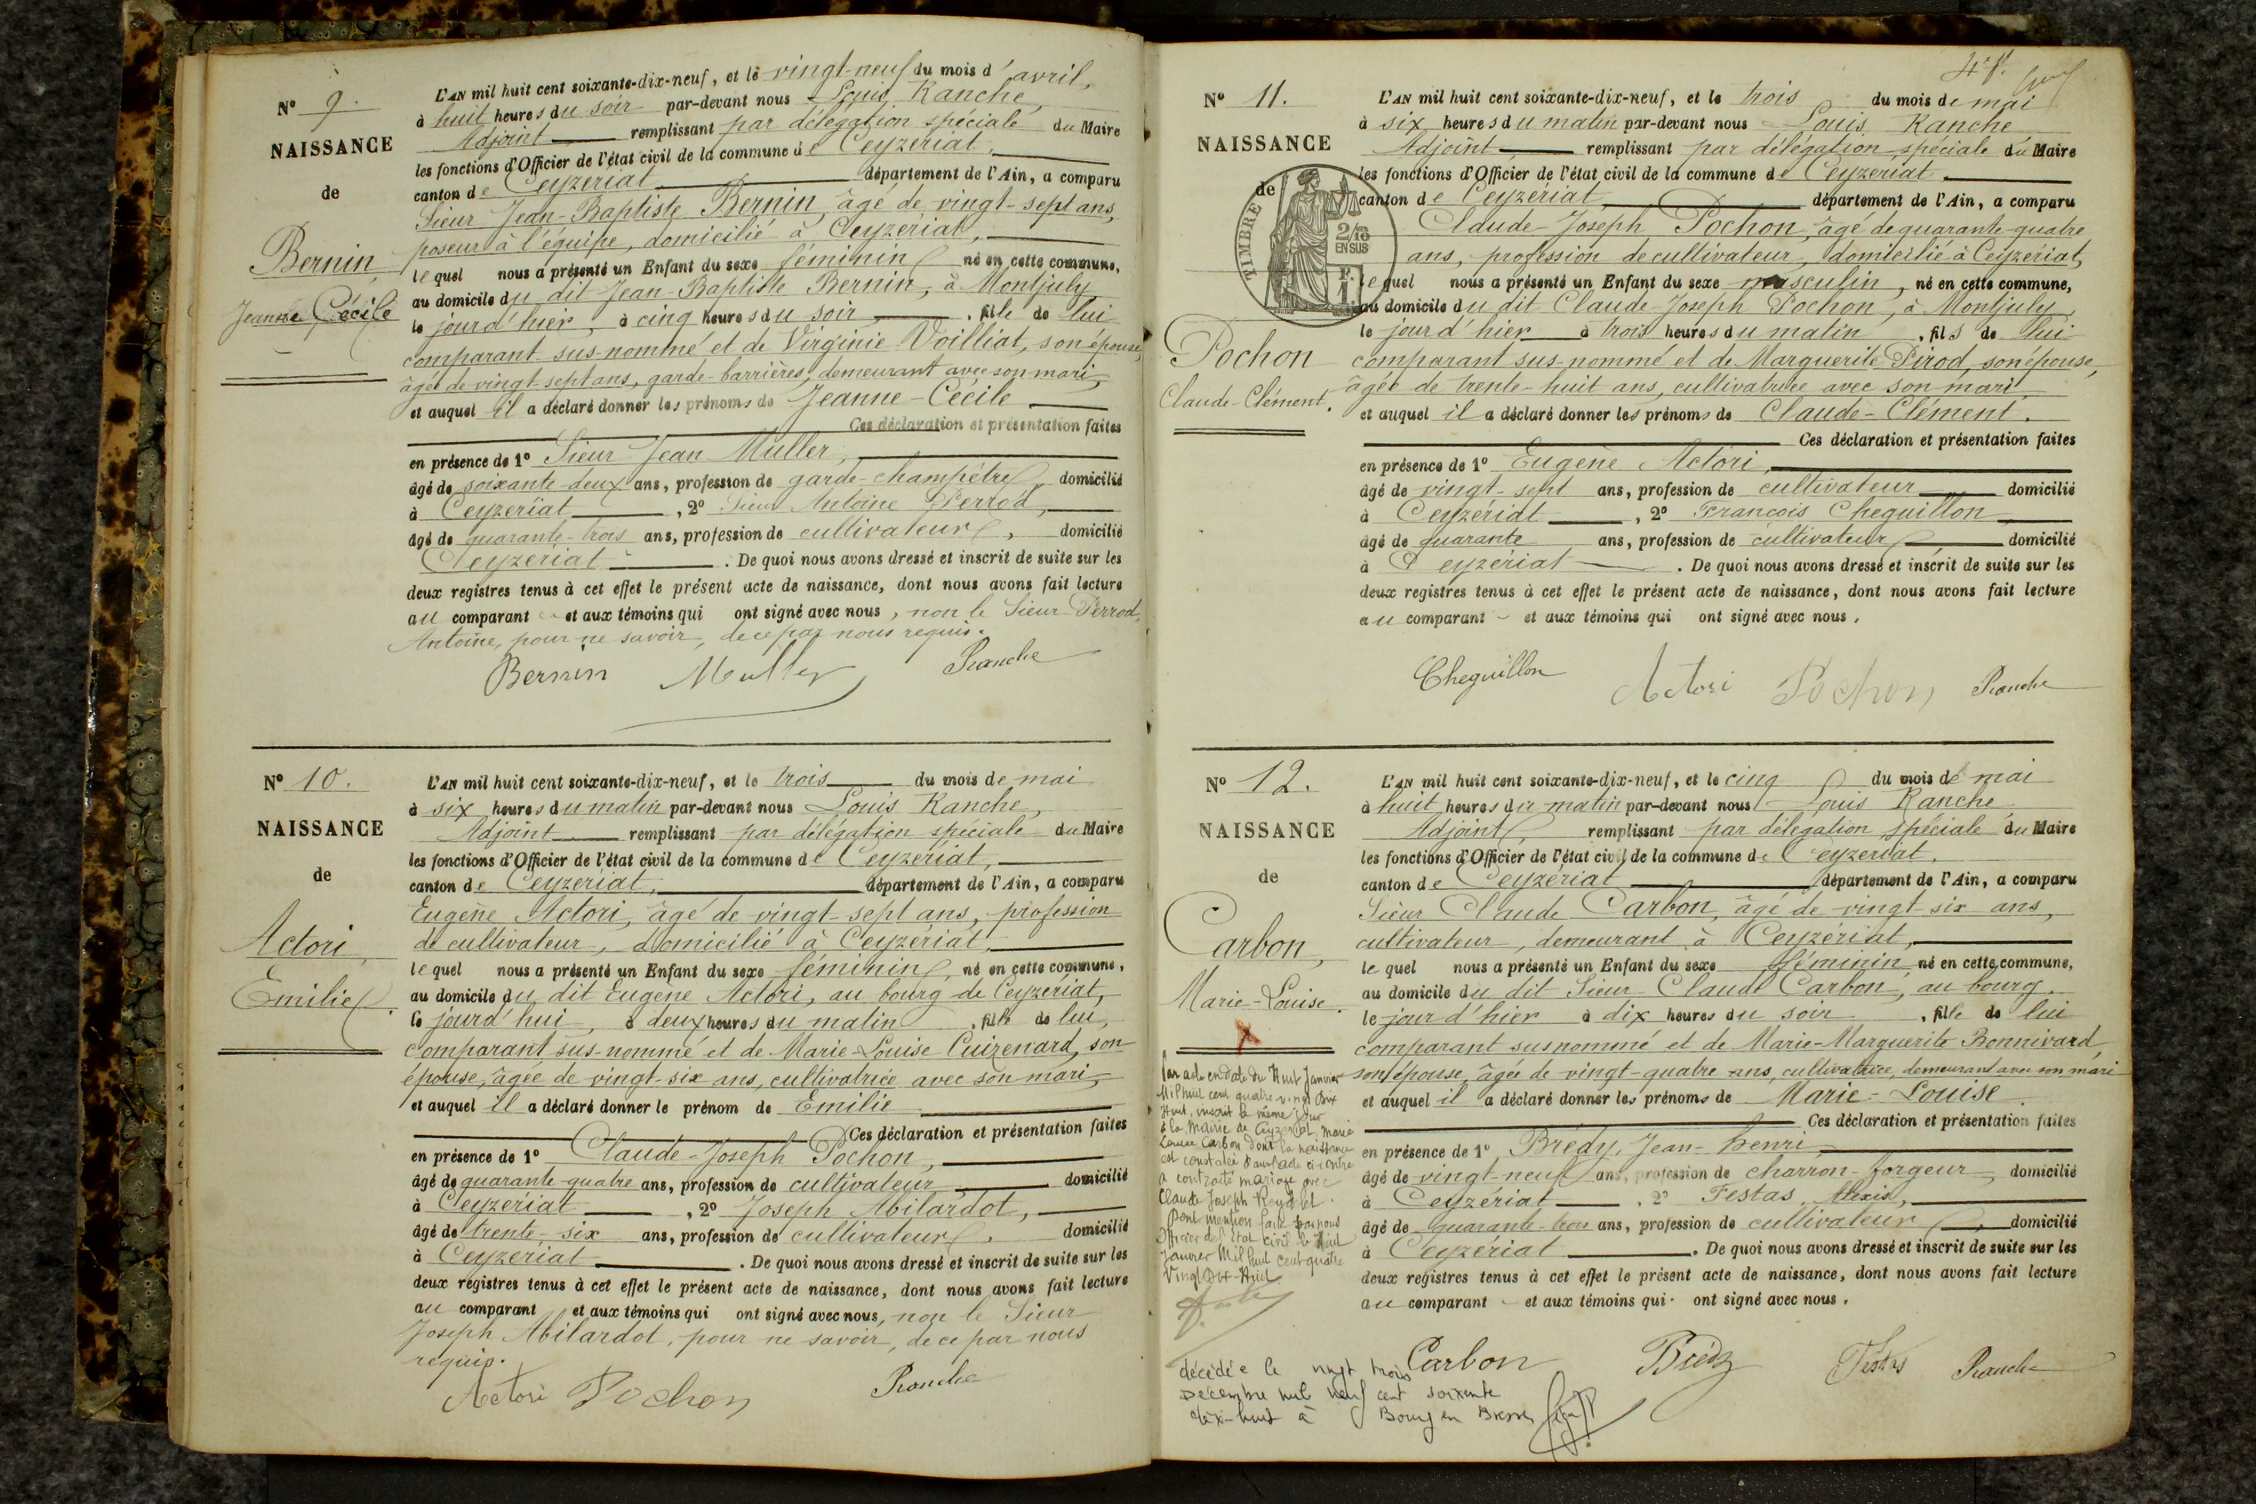 N° 9.
NAISSANCE
de
Bernin
Jeanne Cécile
L'AN mil huit cent soixante-dix-neuf, et le vingt-neuf du mois d'avril,
à huit heures du soir par-devant nous Louis Ranche,
Adjoint remplissant par délégation spéciale du Maire
les fonctions d'Officier de l'état civil de la commune de Ceyzériat,
canton de Ceyzériat département de l'Ain, a comparu
Sieur Jean-Baptiste Bernin, âgé de vingt-sept ans,
poseur à l'équipe, domicilié à Ceyzériat,
lequel nous a présenté un Enfant du sexe féminin né en cette commune,
au domicile du dit Jean-Baptiste Bernin, à Montjuly
le jour d'hier, à cinq heures du soir, fille de lui
comparant sus-nommé et de Virginie Voilliat, son épouse,
âgée de vingt-sept ans, garde-barrières, demeurant avec son mari,
et auquel il a déclaré donner les prénoms de Jeanne-Cécile
Ces déclaration et présentation faites
en présence de 1° Sieur Jean Muller,
âgé de soixante-deux ans, profession de garde-champêtre, domicilié
à Ceyzériat, 2° Sieur Antoine Perrod,
âgé de quarante-trois ans, profession de cultivateur, domicilié
Ceyzériat. De quoi nous avons dressé et inscrit de suite sur les
deux registres tenus à cet effet le présent acte de naissance, dont nous avons fait lecture
au comparant et aux témoins qui ont signé avec nous, non le Sieur Perrod,
Antoine, pour ne savoir, de ce par nous requis.
Bernin Muller Ranche
N° 10.
NAISSANCE
de
Actori,
Emilie.
L'AN mil huit cent soixante-dix-neuf, et le trois du mois de mai
à six heures du matin par-devant nous Louis Ranche,
Adjoint remplissant par délégation spéciale du Maire
les fonctions d'Officier de l'état civil de la commune de Ceyzériat,
canton de Ceyzériat, département de l'Ain, a comparu
Eugène Actori, âgé de vingt-sept ans, profession
de cultivateur, domicilié à Ceyzériat,
lequel nous a présenté un Enfant du sexe féminin, né en cette commune,
au domicile du dit Eugène Actori, au bourg de Ceyzériat,
le jourd'hui, à deux heures du matin, fille de lui,
comparant sus-nommé et de Marie-Louise Cuizenard, son
épouse, âgée de vingt-six ans, cultivatrice avec son mari,
et auquel il a déclaré donner le prénom de Emilie
Ces déclaration et présentation faites
en présence de 1° Claude-Joseph Pochon,
âgé de quarante-quatre ans, profession de cultivateur domicilié
à Ceyzériat, 2° Joseph Abilardot,
âgé de trente-six ans, profession de cultivateur, domicilié
à Ceyzériat. De quoi nous avons dressé et inscrit de suite sur les
deux registres tenus à cet effet le présent acte de naissance, dont nous avons fait lecture
au comparant et aux témoins qui ont signé avec nous, non le Sieur
Joseph Abilardot, pour ne savoir, de ce par nous
requis.
Actori Pochon Ranche
4e f.
N° 11.
NAISSANCE
de
TIMBRE
2/10
EN SUS
F.
1
Pochon
Claude-Clément.
L'AN mil huit cent soixante-dix-neuf, et le trois du mois de mai
à six heures du matin par-devant nous Louis Ranche
Adjoint remplissant par délégation spéciale du Maire
les fonctions d'Officier de l'état civil de la commune de Ceyzériat
canton de Ceyzériat département de l'Ain, a comparu
Claude-Joseph Pochon, âgé de quarante-quatre
ans, profession de cultivateur, domicilié à Ceyzériat,
lequel nous a présenté un Enfant du sexe masculin, né en cette commune,
au domicile du dit Claude-Joseph Pochon, à Montjuly
le jour d'hier à trois heures du matin, fils de lui
comparant sus-nommé et de Marguerite Pirod, son épouse,
âgée de trente-huit ans, cultivatrice avec son mari
et auquel il a déclaré donner les prénoms de Claude-Clément.
Ces déclaration et présentation faites
en présence de 1° Eugène Actori,
âgé de vingt-sept ans, profession de cultivateur domicilié
à Ceyzériat, 2° François Cheguillon
âgé de quarante ans, profession de cultivateur domicilié
à Ceyzériat. De quoi nous avons dressé et inscrit de suite sur les
deux registres tenus à cet effet le présent acte de naissance, dont nous avons fait lecture
au comparant et aux témoins qui ont signé avec nous.
Cheguillon Actori Pochon Ranche
N° 12.
NAISSANCE
de
Carbon,
Marie-Louise.
L'AN mil huit cent soixante-dix-neuf, et le cinq du mois de mai
à huit heures du matin par-devant nous Louis Ranche
Adjoint, remplissant par délégation spéciale du Maire
les fonctions d'Officier de l'état civil de la commune de Ceyzériat.
canton de Ceyzériat département de l'Ain, a comparu
Sieur Claude Carbon, âgé de vingt six ans,
cultivateur, demeurant à Ceyzériat,
lequel nous a présenté un Enfant du sexe féminin né en cette commune,
au domicile du dit Sieur Claude Carbon, au bourg.
le jour d'hier à dix heures du soir, fille de lui
comparant susnommé et de Marie-Marguerite Bonnivard,
son épouse, âgée de vingt-quatre ans, cultivatrice, demeurant avec son mari
et auquel il a déclaré donner les prénoms de Marie-Louise.
Ces déclaration et présentation faites
en présence de 1° Brédy, Jean-henri,
âgé de vingt-neuf ans, profession de charron-forgeur, domicilié
à Ceyzériat, 2° Festas, Alexis,
âgé de quarante-trois ans, profession de cultivateur, domicilié
à Ceyzériat. De quoi nous avons dressé et inscrit de suite sur les
deux registres tenus à cet effet le présent acte de naissance, dont nous avons fait lecture
au comparant et aux témoins qui ont signé avec nous.
Carbon Brédy Festas Ranche
Par acte en date du Huit Janvier
Mil huit cent quatre-vingt Dix
Huit, inscrit le même jour
à la Mairie de Ceyzériat, Marie
Louise Carbon dont la naissance
est constatée dans l'acte ci-contre
a contracté mariage avec
Claude Joseph Reydelet.
Dont mention faite par nous
Officier de l'Etat civil le Huit
Janvier Mil huit cent quatre
Vingt Dix-Huit
décédée le vingt trois
Décembre mil neuf cent soixante
dix-huit à Bourg en Bresse